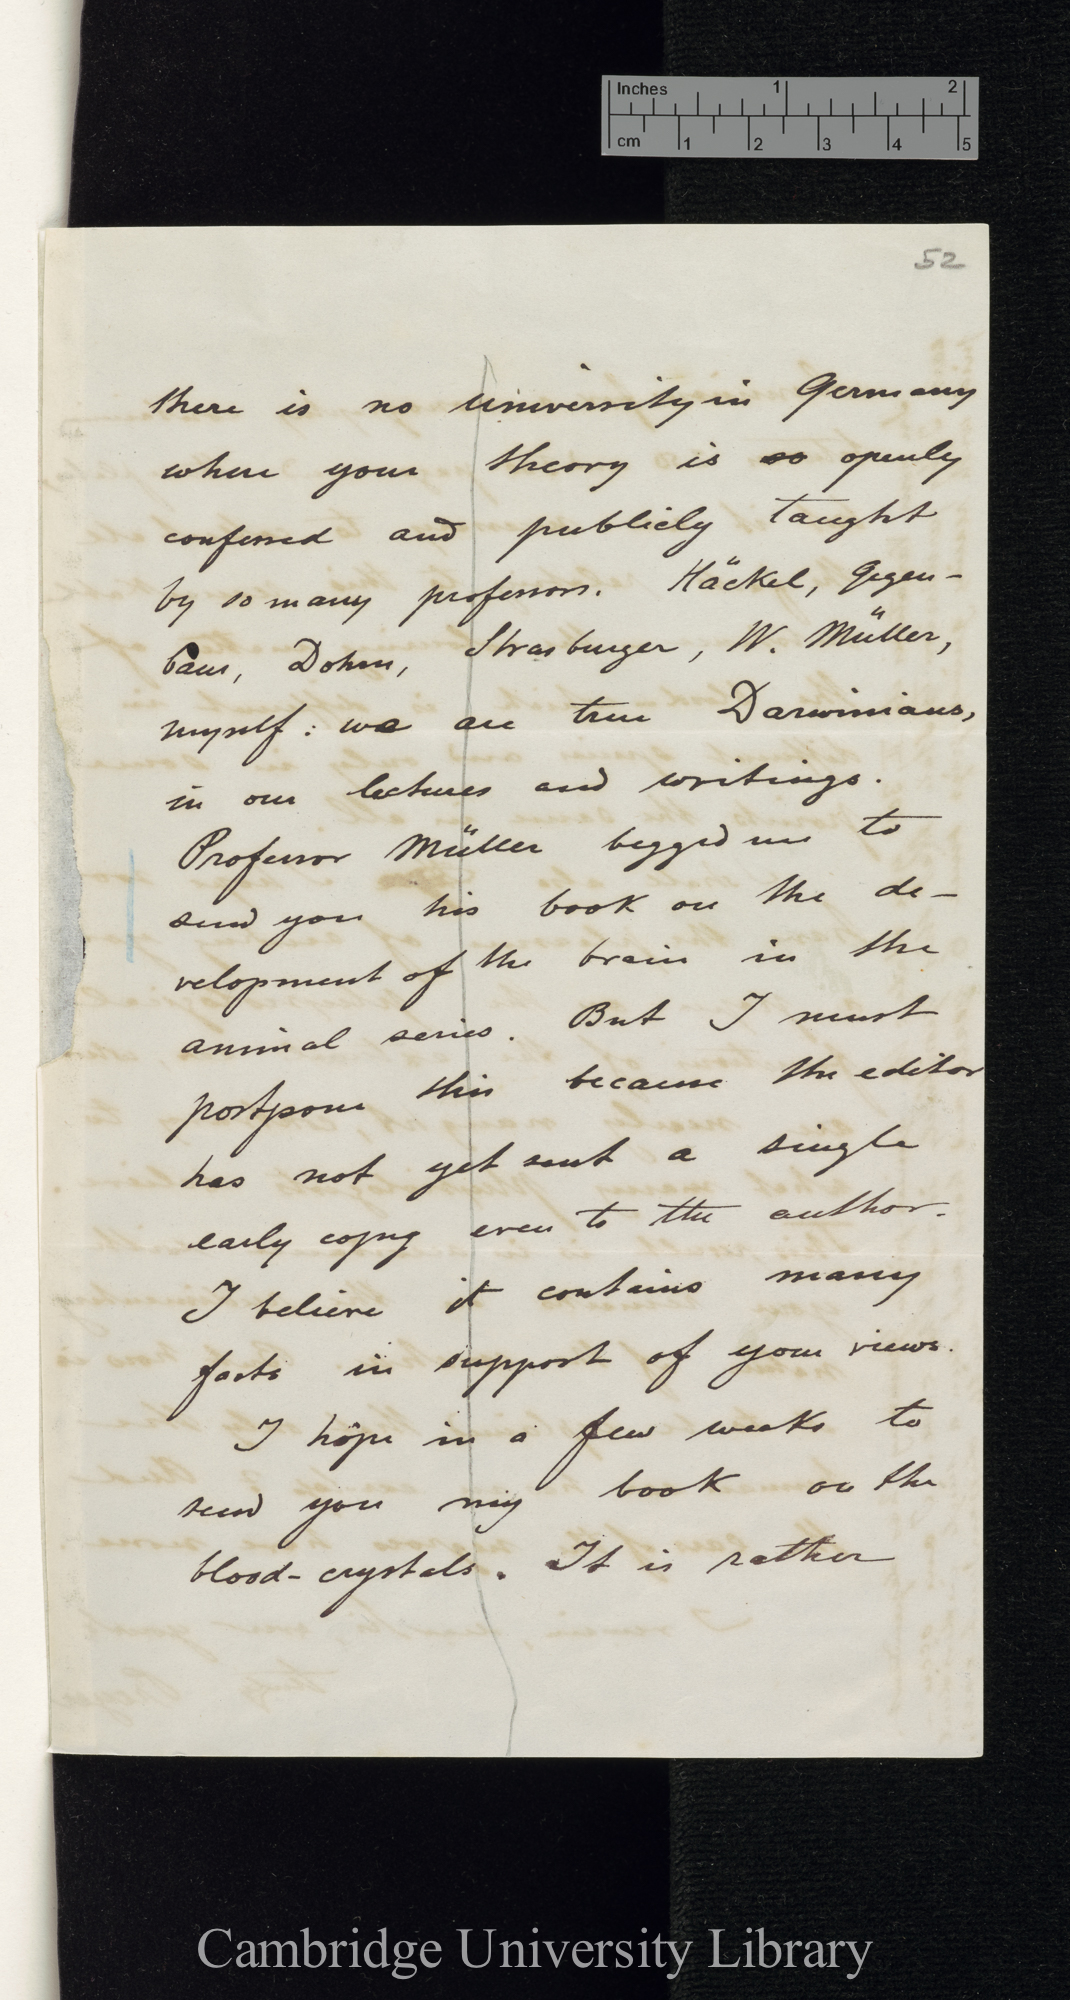 Inches 1 2
cm 1 2 3 4 5
52
there is no university in Germany
where your theory is so openly
confessed and publicly taught
by so many professors. Häckel, Gegen-
baur, Dohrn, Strasburger, W. Müller,
myself: we are true Darwinians,
in our lectures and writings.
Professor Müller begged me to
send you his book on the de-
velopment of the brain in the
animal series. But I must
postpone this because the editor
has not yet sent a single
early copy even to the author.
I believe it contains many
facts in support of your views.
I hope in a few weeks to
send you my book on the
blood-crystals. It is rather
Cambridge University Library